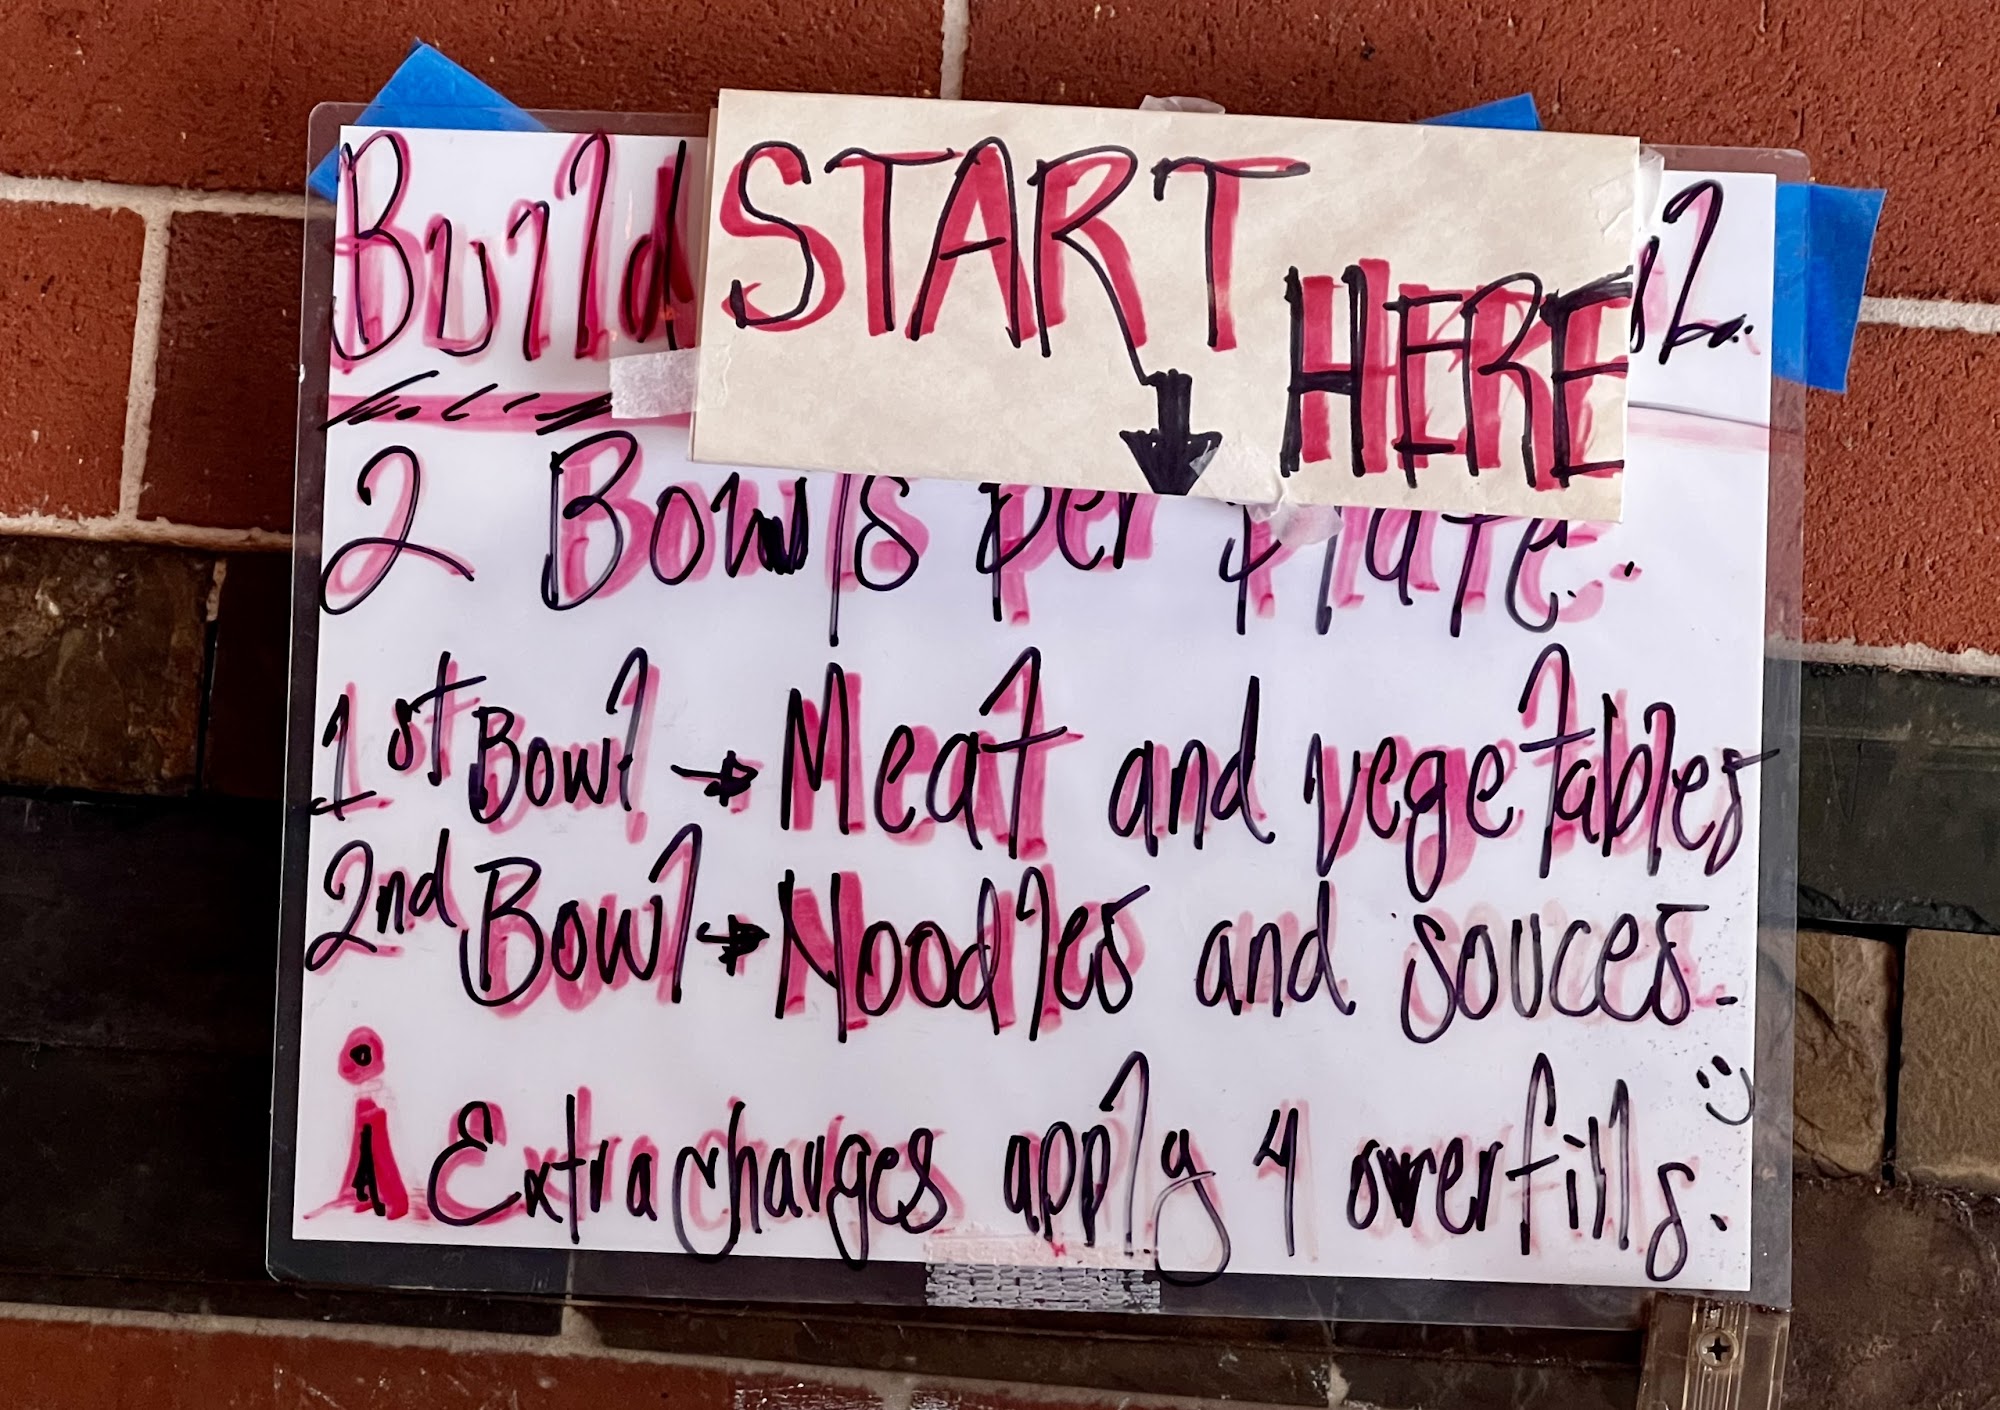 START
HERE
Build
2 Bowls per plate.
1st Bowl → Meat and vegetables
2nd Bowl → Noodles and souces.
Extra charges apply 4 overfills.